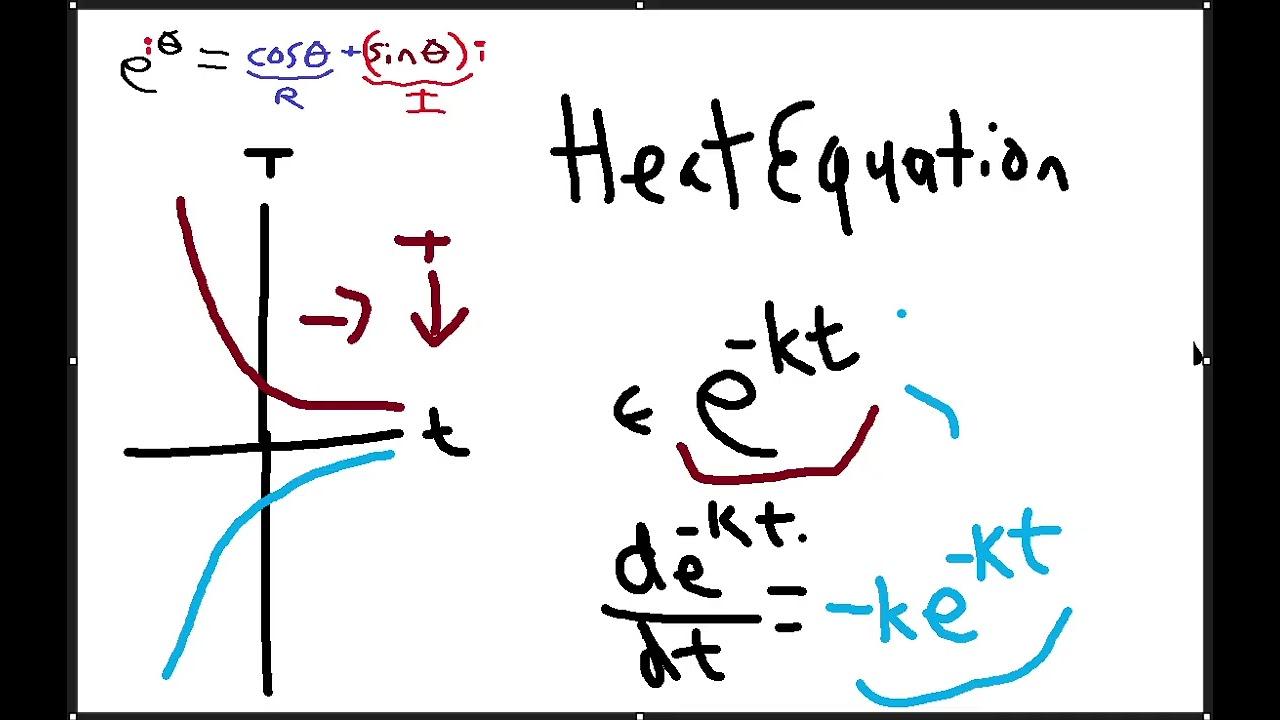 e^{iθ} = cosθ + (sinθ)i
R I
Heat Equation
T
→ T ↓
t
e^{-kt}
de^{-kt}/dt = -ke^{-kt}